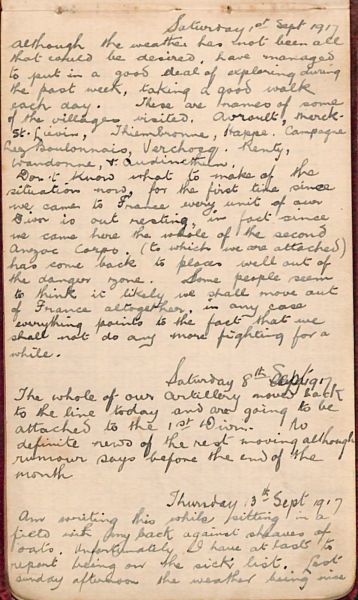 Saturday, 1st Sept 1917
Although the weather has not been all
that could be desired, have managed
to put in a good deal of exploring during
the past week, taking a good walk
each day. These are names of some
of the villages visited. Avroult, Merck-
St-Lievin, Thiembronne, Happe. Campagne
Lez Boulonnais, Verchocq. Renty,
Wandonne, & Audincthun.
Don't know what to make of the
situation now, for the first time since
we came to France every unit of our
Divn is out resting, in fact since
we came here the whole of the second
Anzac Corps. (to which we are attached)
has come back to places well out of
the danger zone. Some people seem
to think it likely we shall move out
of France altogether, in any case
everything points to the fact that we
shall not do any more fighting for a
while.
Saturday 8th Sept 1917
The whole of our Artillery moved back
to the line today and are going to be
attached to the 1st Divn. No
definite news of the rest moving although
rumour says before the end of the
month
Thursday, 13th Sept 1917
Am writing this while sitting in a
field with my back against sheaves of
oats. Unfortunately I have at last to
report being on the sick list. Last
Sunday afternoon the weather being nice